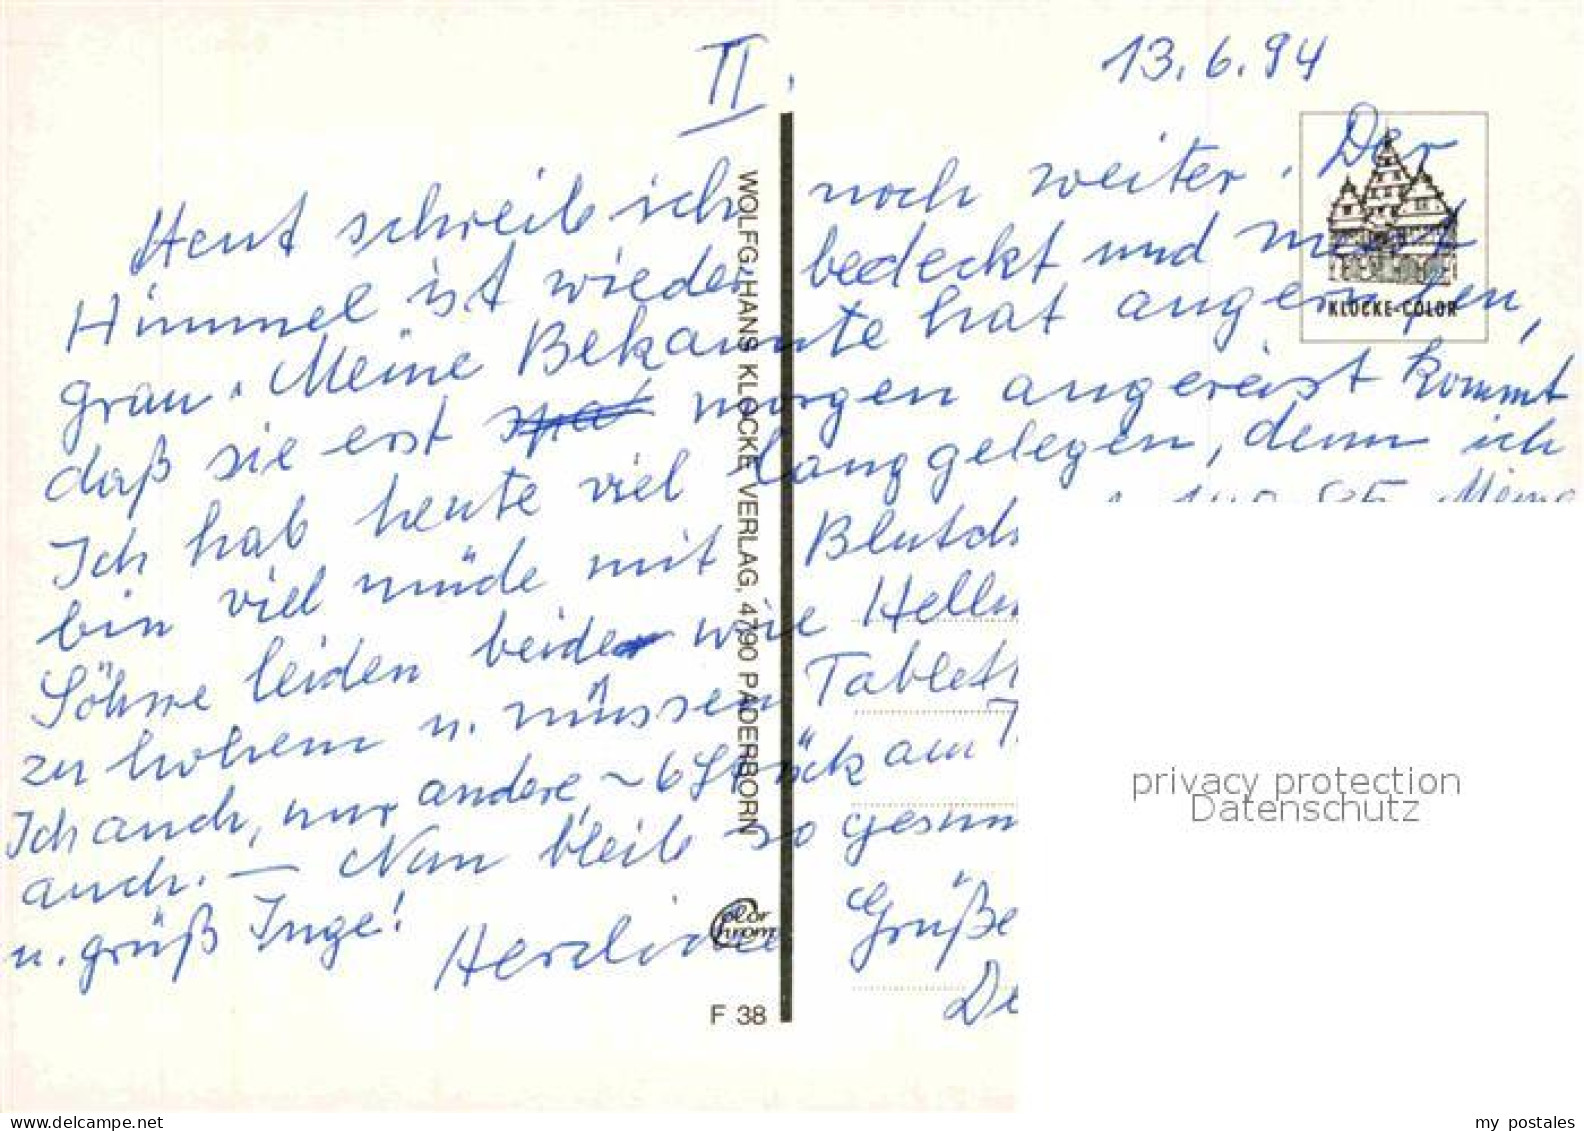 II.
13.6.94
Heut schreib ich noch weiter. Der
Himmel ist wieder bedeckt und meist
grau. Meine Bekannte hat angerufen,
daß sie erst morgen angereist kommt
Ich hab heute viel lang gelegen, denn ich
bin viel müde mit Blutdr
Meine
Söhne leiden beide wie Hellm
zu hohem u. müssen Tablett
Ich auch, nur andere, ~6 Stück am T
auch. — Nun bleib so gesun
u. grüß Inge!
Herzliche Grüße
De
WOLFG. HANS KLOCKE VERLAG, 4790 PADERBORN
KLOCKE-COLOR
Color
chrom
F 38
privacy protection
Datenschutz
www.delcampe.net
my_postales